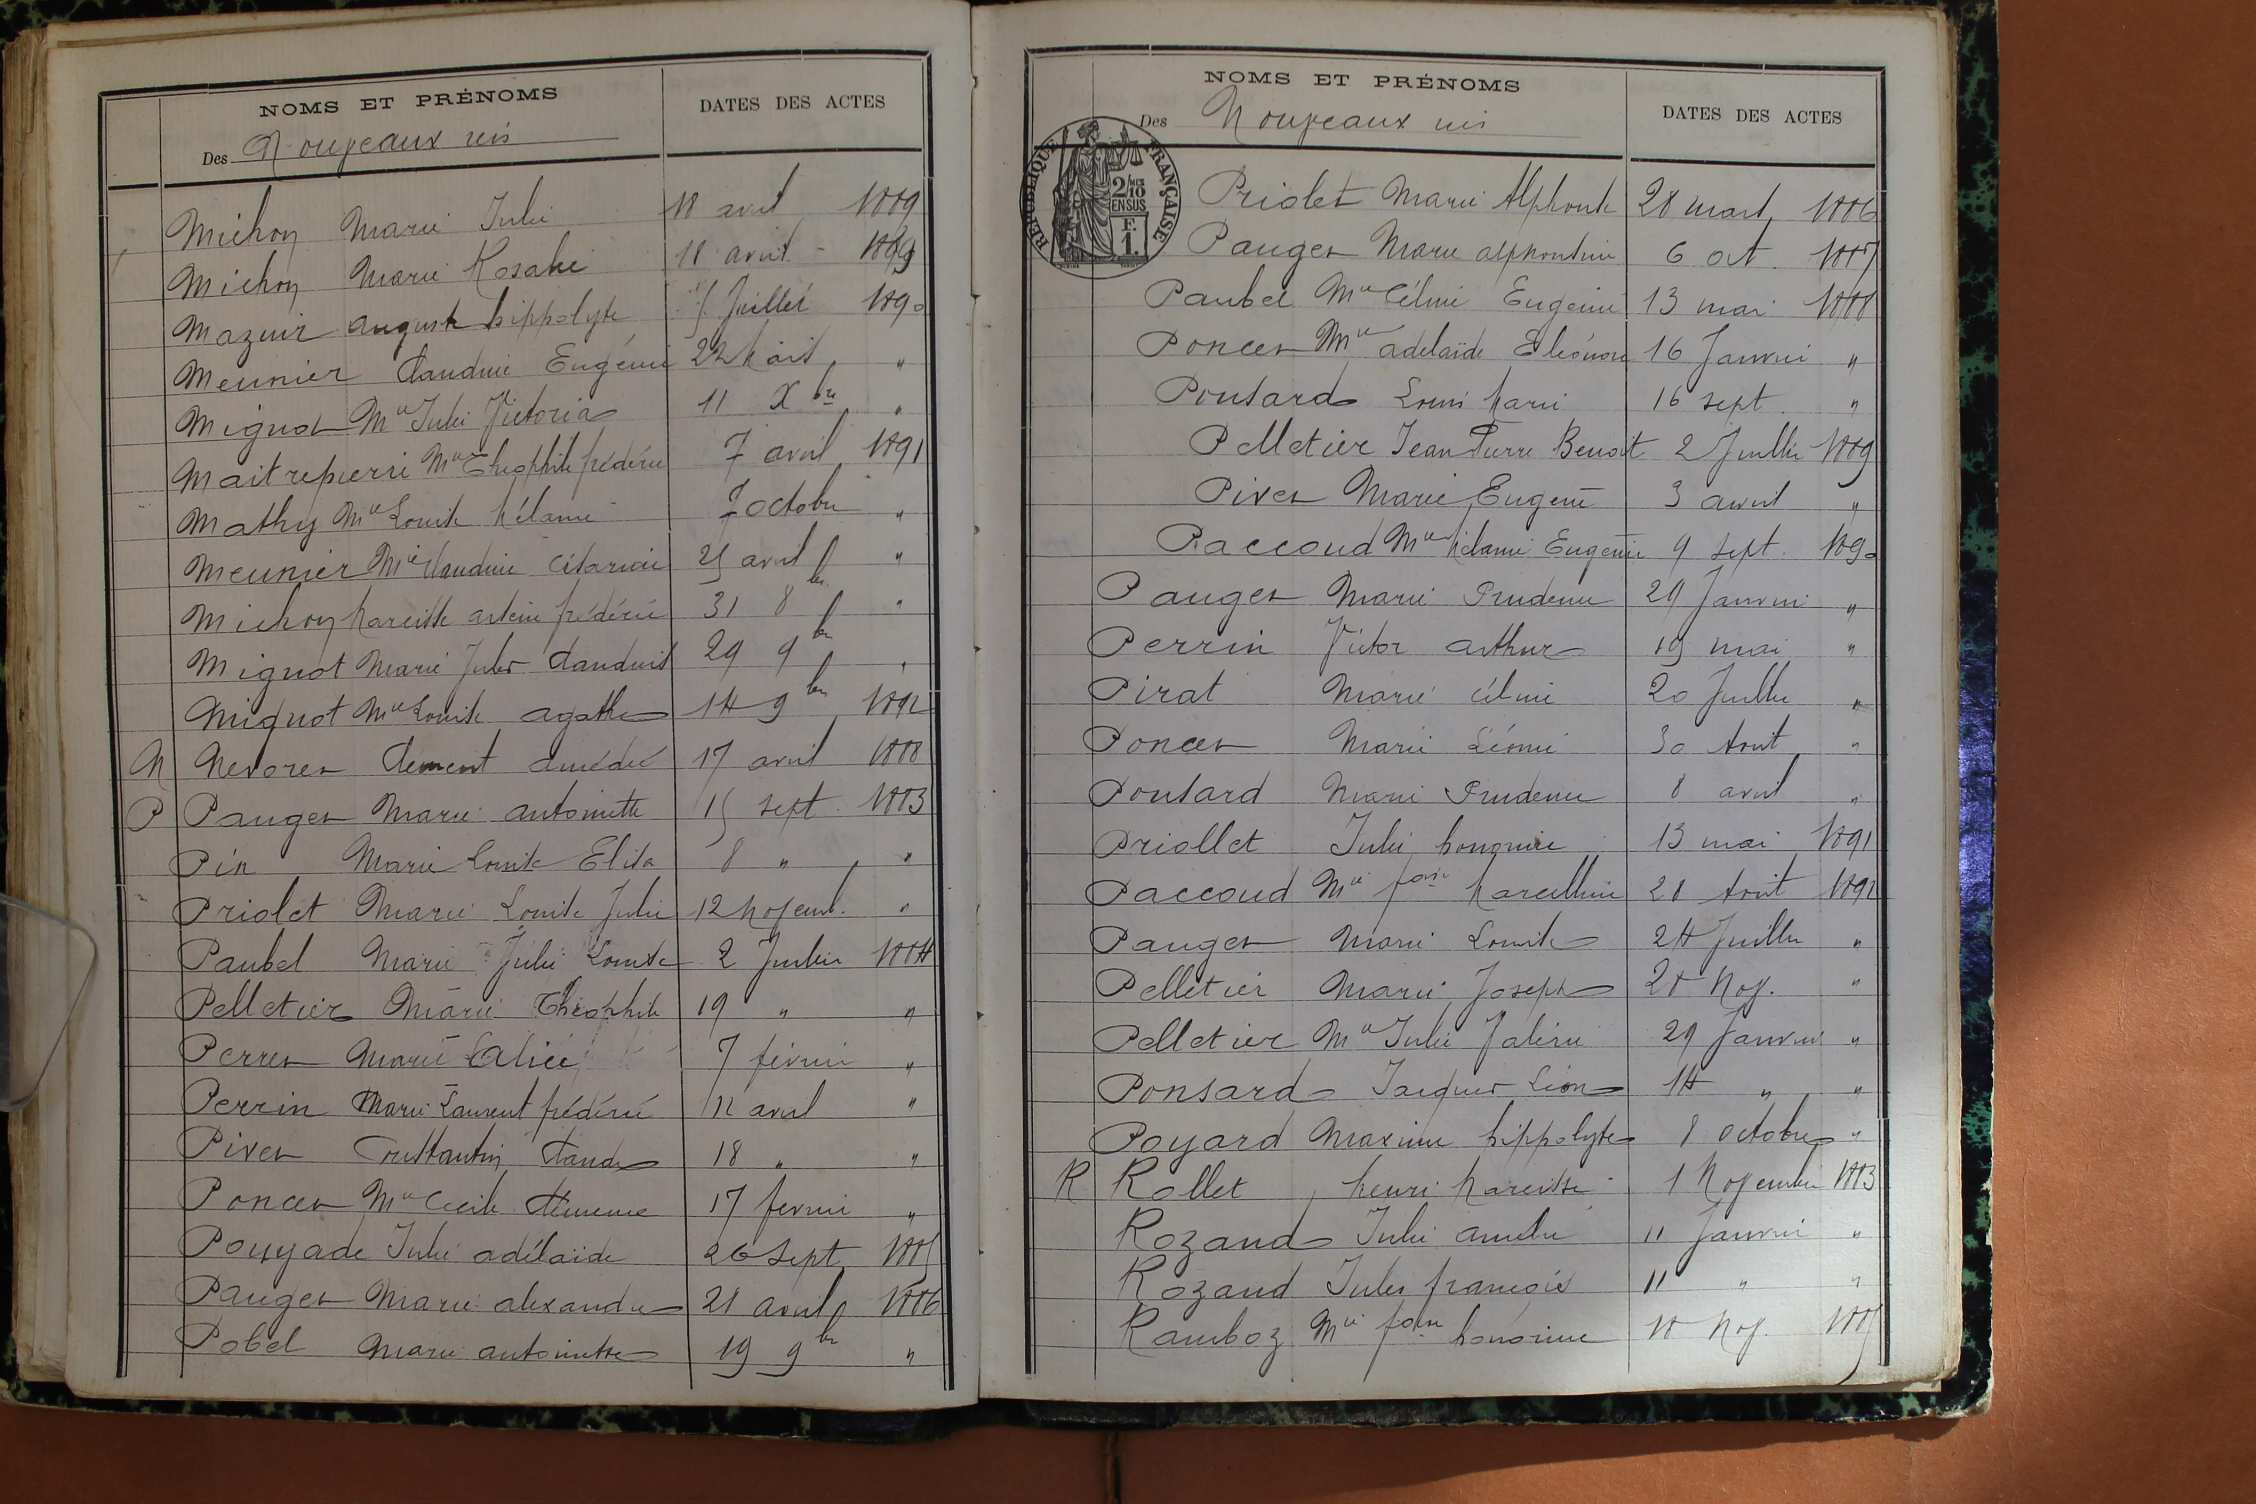 NOMS ET PRÉNOMS
DATES DES ACTES
Des Nouveaux nés
Michon Marie Julie 18 avril 1889
Michon Marie Rosalie 18 avril 1889
Mazuir auguste hippolyte Juillet 1890
Meunier Claudine Eugénie 22 "
Mignot Mie Julie Victoria 11 Xbre "
Maitrepierre Mie Théophile frédéric 7 avril 1891
Mathy Mie Louise Mélanie 7 octobre "
Meunier Mie Claudine 25 avril "
Michon Narcisse frédéric 31 8bre "
Mignot Marie Jules 29 9bre "
Mignot Mie Louise agathe 14 9bre 1892
N Nevoret Clement amédée 17 avril 1888
P Pauget Marie antoinette 15 sept. 1883
Pin Marie Louise Elisa 8 " "
Priolet Marie Louise Julie 12 Novemb. "
Paubel Marie Julie Louise 2 1884
Pelletier Marie Théophile 19 " "
Perret Marie Alice 7 février "
Perrin Marie Laurent frédéric 12 avril "
Pivet Constantin Claude 18 " "
Poncet Mie Cecile Clémence 17 fevrier "
Pouyade Julie adélaïde 26 Sept 1885
Pauget Marie alexandre 28 avril 1886
Pobel Marie antoinette 19 9bre "
NOMS ET PRÉNOMS
DATES DES ACTES
Des Nouveaux nés
RÉPUBLIQUE FRANÇAISE
2/10 EN SUS
1 F.
Priolet Marie Alphonse 28 mars 1886
Pauget Marie alphonsine 6 oct. 1887
Paubel Mie Céline Eugénie 13 mai 1888
Poncet Mie adelaïde Eléonore 16 Janvier "
Ponsard Louis Marie 16 sept. "
Pelletier Jean Pierre Benoit 2 Juillet 1889
Pivet Marie Eugene 3 avril "
Paccoud Mie Mélanie Eugénie 9 sept. 1890
Pauget Marie Prudence 29 Janvier "
Perrin Victor arthur 15 mai "
Pirat Marie Céline 20 Juillet "
Poncet Marie Léonie 30 Aout "
Ponsard Marie Prudence 8 avril "
Priollet Julie honorine 13 mai 1891
Paccoud Mie foise Marcelline 28 Aout 1892
Pauget Marie Louise 24 Juillet "
Pelletier Marie Joseph 28 Nov. "
Pelletier Mie Julie Valérie 29 Janvier "
Ponsard Jacques Léon 14 " "
Poyard Maxime hippolyte 8 octobre "
R Rollet henri Narcisse 1 Novembre 1883
Rozand Julie amélie 11 Janvier "
Rozand Jules françois 11 " "
Ramboz Mie foise honorine 18 Nov. 1885